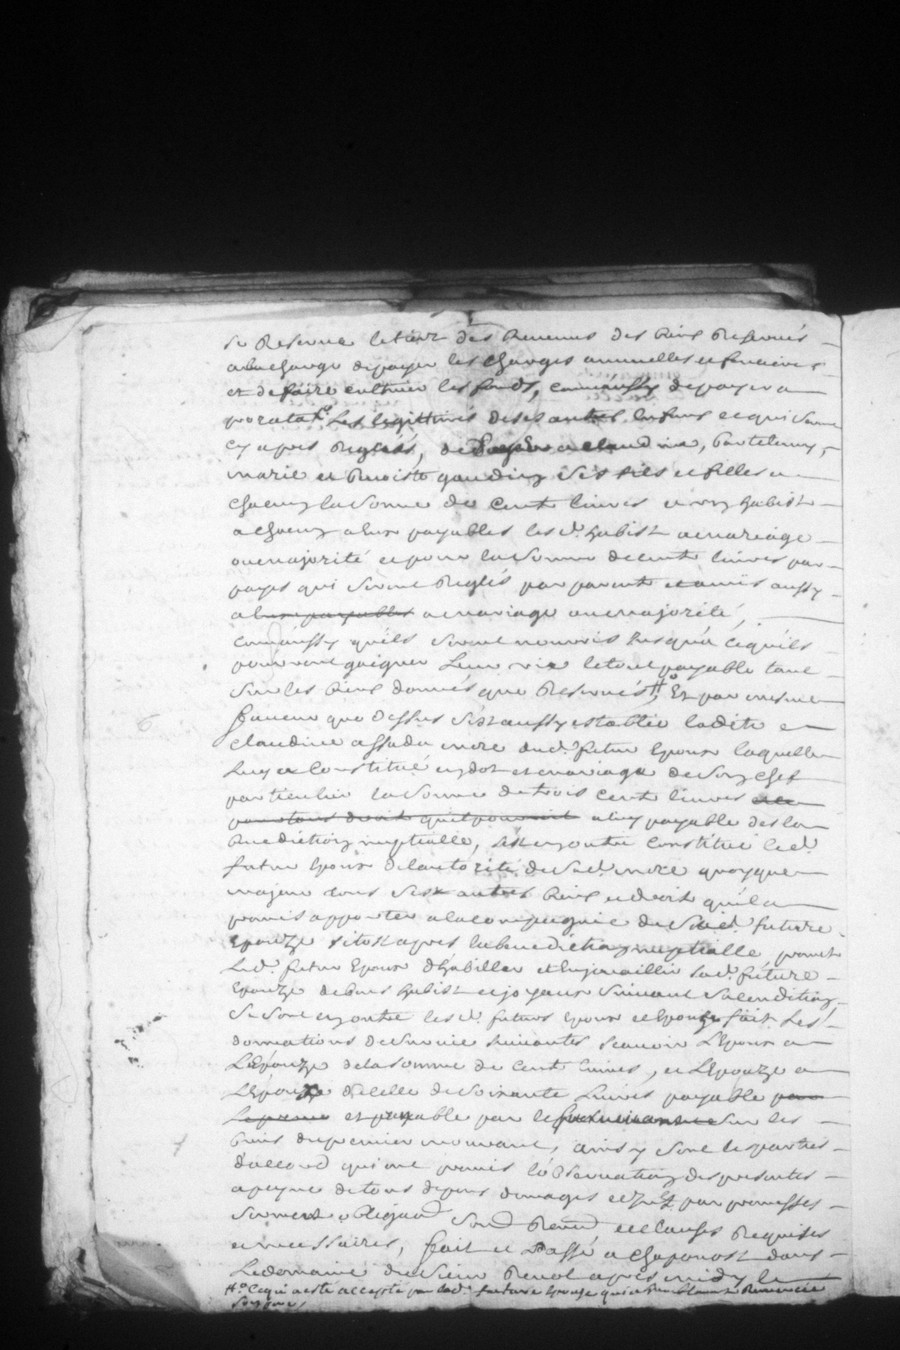 Se Reserve letiers des Revenus des biens Reservés
a la charge depayer les charges annuelles et foncieres
et defaire cultiver les fonds, comaussy depayer a
porata les legittimes deses autres Enfans et qui seront
cy apres Reglées, de claudine, Bartelemy,
marie et Benoiste gaudin ses fils et filles a
chacun la Somme de Cent livres et un habist
a chacun deux payables lesd. habist a mariage
ou majorité et pour la Somme de cent livres par
pays qui seront Reglés par parents et amis aussy
a leux payables a mariage ou majorité,
comaussy quils seront nourris Jusqua cequils
pourront gaigner Leur vie le tout payable tant
sur les biens donnés que Reservés, Et par mesme
faveur que dessus sest aussy establie ladite
claudine assada mere dud. futur Epoux laquelle
luy a Constitué en dot et mariage de son chef
particulier la somme de trois cent livres
pour tous droit quil pouroit a luy payable des la
Benediction nuptialle, sest en outre Constitué led.
futur Epoux de lautorité de sad. mere quoyque
majeur tous ses autres biens et droit quil a
promis apporter a la compagnie de sad. future
Epouze sitost apres la benediction nuptialle, promet
Led. futur Epoux dhabiller et Enjouailler sad. future
Epouze de bons habist et joyaux suivant sa condition
Se sont en outre lesd. futurs Epoux et Epouze fait Les
donnations de survie suivantes scavoir LEpoux a
LEpouze de la somme de Cent livres, et LEpouze a
LEpoux de celle de soixante Livres payable
et payable par le survivant sur les
biens du premier mourant, ainsy sont les parties
daccord qui ont promis lobservation des presentes
a peyne de tous depens domages par promesses
serment obligaōn soub Renōn et Clauses Requises
et necessaires, fait et Passé a chaponost dans
Le domaine du sieur Benot apres midy le
Cequi a esté accepté par lad. future Epouze qui a Renoncée